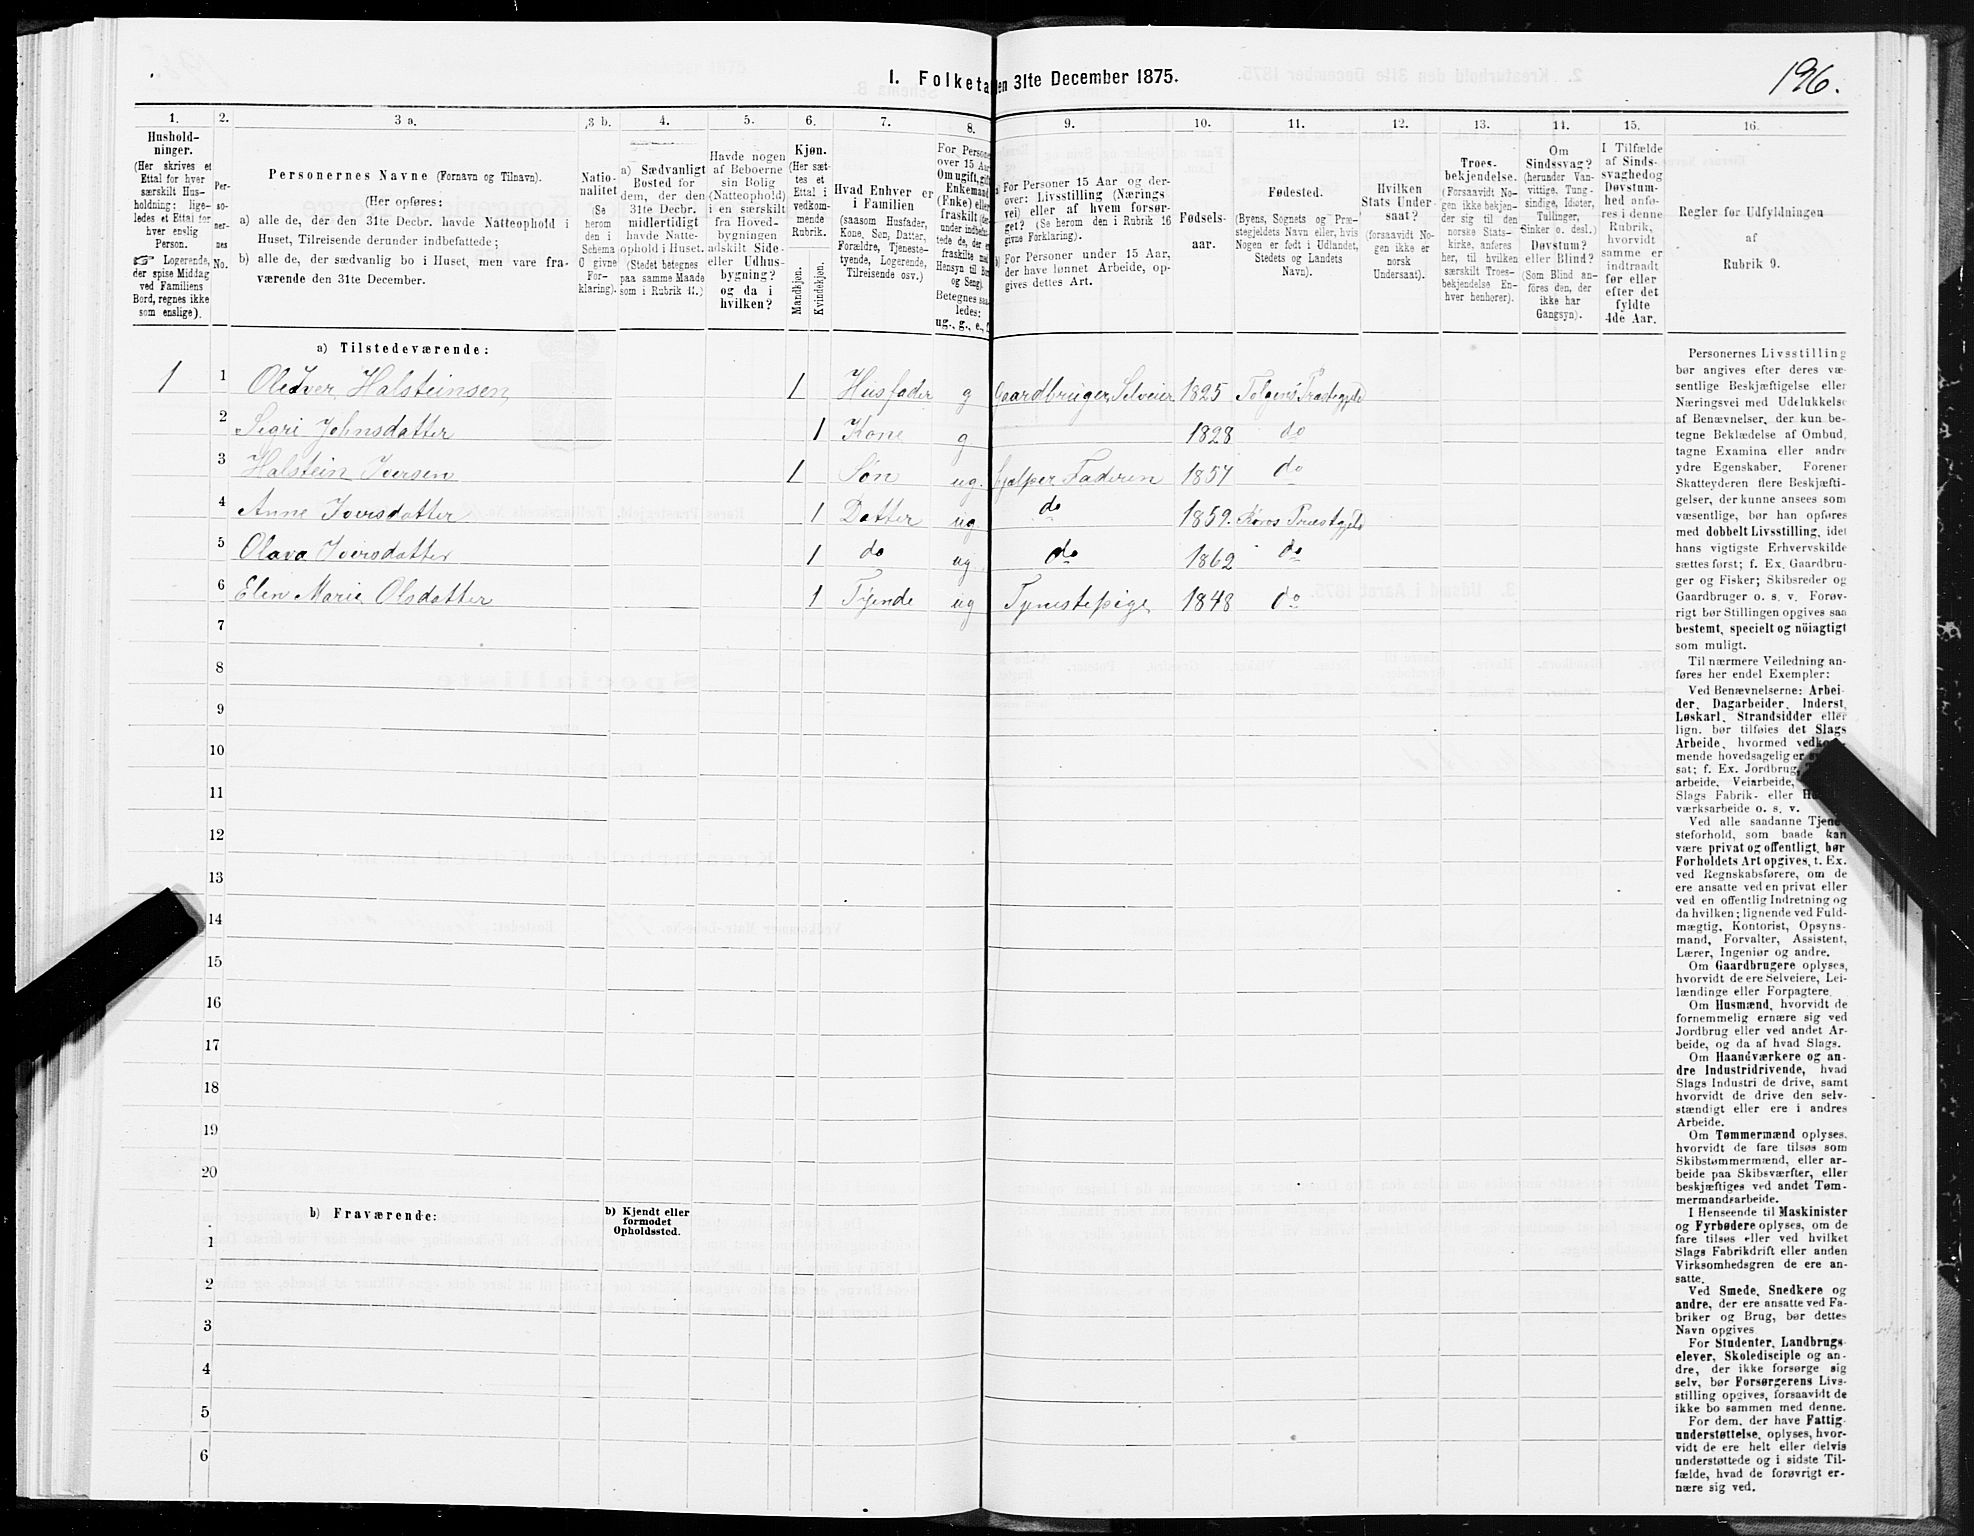 I. Folketa en 31te December 1875.
196.
1.
Hushold-
ninger.
(Her skrives et
Ettal for hver
særskilt Hus-
holdning; lige-
ledes et Ettal for
hver enslig
Person.
☞ Logerende,
der spise Middag
ved Familiens
Bord, regnes ikke
som enslige).
2.
Per-
so-
ner-
nes
No.
3 a.
Personernes Navne (Fornavn og Tilnavn).
(Her opføres:
a) alle de, der den 31te Decbr. havde Natteophold i
Huset, Tilreisende derunder indbefattede;
b) alle de, der sædvanlig bo i Huset, men vare fra-
værende den 31te December.
3 b.
Natio-
nalitet
(Se
herom
den i
Schema
C givne
For-
klaring).
4.
a) Sædvanligt
Bosted for
dem, der den
31te Decbr.
midlertidigt
havde Natte-
ophold i Huset.
(Stedet betegnes
paa samme Maade
som i Rubrik 11.)
5.
Havde nogen
af Beboerne
sin Bolig
(Natteophold)
i en særskilt
fra Hoved-
bygningen
adskilt Side-
eller Udhus-
bygning?
og da i
hvilken?
6.
Kjøn.
(Her sæt-
tes et
Ettal i
vedkom-
mende
Rubrik.
Mandkjøn.
Kvindekjøn.
7.
Hvad Enhver er
i Familien
(saasom Husfader,
Kone, Søn, Datter,
Forældre, Tjeneste-
tyende, Logerende,
Tilreisende osv.)
8.
For Persone
over 15 Aar
Om ugift, gift
Enkemand
(Enke) eller
fraskilt
Hensyn til B
og Seng).
Betegnes saa-
ledes:
ug., g., e.,
9.
a) For Personer 15 Aar og der-
over: Livsstilling (Nærings-
vei) eller af hvem forsør-
get? (Se herom den i Rubrik 16
givne Forklaring).
b) For Personer under 15 Aar,
der have lønnet Arbeide, op-
gives dettes Art.
10.
Fødsels-
aar.
11.
Fødested.
(Byens, Sognets og Præ-
stegjeldets Navn eller, hvis
Nogen er født i Udlandet,
Stedets og Landets
Navn).
12.
Hvilken
Stats Under-
saat?
(forsaavidt No-
gen ikke er
norsk
Undersaat).
13.
Troes-
bekjendelse.
(Forsaavidt No-
gen ikke bekjen-
der sig til den
norske Stats-
kirke, anføres
her, til hvilken
særskilt Troes-
bekjendelse En-
hver henhører).
14.
Om
Sindssvag?
(herunder Van-
vittige, Tung-
sindige, Idioter,
Tullinger,
Sinker o. desl.)
Døvstum?
eller Blind?
(Som Blind an-
føres den, der
ikke har
Gangsyn).
15.
I Tilfælde
af Sinds-
svaghed og
Døvstum-
hed anfø-
res i denne
Rubrik,
hvorvidt
samme er
indtraadt
før eller
efter det
fyldte
4de Aar.
16.
Regler for Udfyldningen
af
Rubrik 9.
a) Tilstedeværende:
1 1 Ole Iver Halsteinsen 1 Husfader g Gaardbruger Selveier 1825 Tolgens Præstegjeld
2 Sigri Johnsdatter 1 Kone g 1828 do
3 Halstein Iversen 1 Søn ug. hjælper Faderen 1857 do
4 Anne Iversdatter 1 Datter ug do 1859. Røros Præstgjeld
5 Olava Iversdatter 1 do ug do 1862 do
6 Elen Marie Olsdatter 1 Tyende ug Tjenestepige 1848 do
7
8
9
10
11
12
13
14
15
16
17
18
19
20
b) Fraværende:
b) Kjendt eller
formodet
Opholdssted.
1
2
3
4
5
6
Personernes Livsstilling
bør angives efter deres væ-
sentlige Beskjæftigelse eller
Næringsvei med Udelukkelse
af Benævnelser, der kun be-
tegne Beklædelse af Ombud,
tagne Examina eller andre
ydre Egenskaber. Forener
Skatteyderen flere Beskjæfti-
gelser, der kunne ansees som
væsentlige, bør han opføres
med dobbelt Livsstilling, idet
hans vigtigste Erhvervskilde
sættes først; f. Ex. Gaardbru-
ger og Fisker; Skibsreder og
Gaardbruger o. s. v. Forøv-
rigt bør Stillingen opgives saa
bestemt, specielt og nöiagtigt
som muligt.
Til nærmere Veiledning an-
føres her endel Exempler:
Ved Benævnelserne: Arbei-
der, Dagarbeider, Inderst,
Løskarl, Strandsidder eller
lign. bør tilføies det Slags
Arbeide, hvormed vedkom-
mende hovedsagelig er
sat; f. Ex. Jordbrug,
arbeide, Veiarbeide,
Slags Fabrik- eller
værksarbeide o. s. v.
Ved alle saadanne Tjene-
steforhold, som baade kan
være privat og offentligt, bør
Forholdets Art opgives, t. Ex.
ved Regnskabsførere, om de
ere ansatte ved en privat eller
ved en offentlig Indretning og
da hvilken; lignende ved Fuld-
mægtig, Kontorist, Opsyns-
mand, Forvalter, Assistent,
Lærer, Ingeniør og andre.
Om Gaardbrugere oplyses,
hvorvidt de ere Selveiere, Lei-
lændinge eller Forpagtere.
Om Husmænd, hvorvidt de
fornemmelig ernære sig ved
Jordbrug eller ved andet Ar-
beide, og da af hvad Slags.
Om Haandværkere og an-
dre Industridrivende, hvad
Slags Industri de drive, samt
hvorvidt de drive den selv-
stændigt eller ere i andres
Arbeide.
Om Tømmermænd oplyses,
hvorvidt de fare tilsøs som
Skibstømmermænd, eller ar-
beide paa Skibsværfter, eller
beskjæftiges ved andet Tøm-
mermandsarbeide.
I Henseende til Maskinister
og Fyrbødere oplyses, om de
fare tilsøs eller ved hvilket
Slags Fabrikdrift eller anden
Virksomhedsgren de ere an-
satte.
Ved Smede, Snedkere og
andre, der ere ansatte ved Fa-
briker og Brug, bør dettes
Navn opgives
For Studenter, Landbrugs-
elever, Skoledisciple og an-
dre, der ikke forsørge sig
selv, bør Forsørgerens Livs-
stilling opgives, forsaavidt de
ikke bo sammen med denne.
For dem, der have Fattig-
understøttelse, oplyses, hvor-
vidt de ere helt eller delvis
understøttede og i sidste Til-
fælde, hvad de forøvrigt er-
nære sig ved.